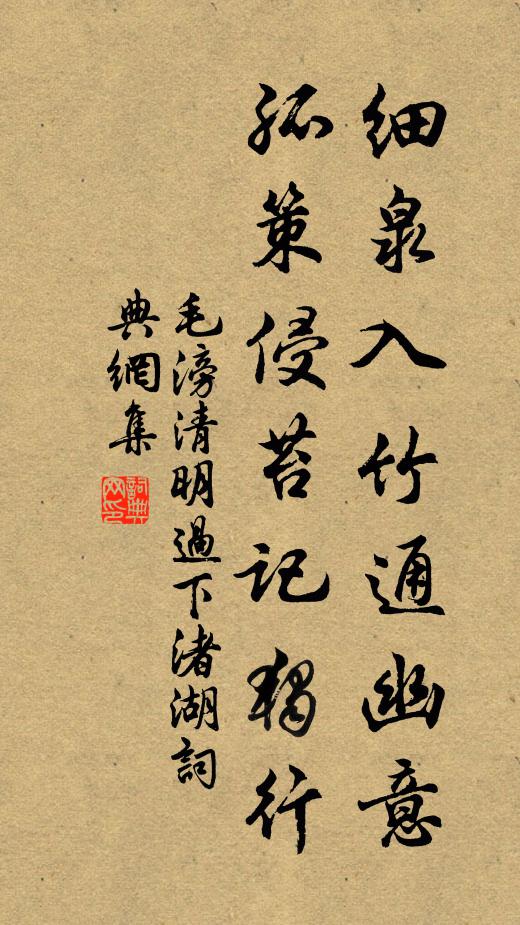 细泉入竹通幽意
孤策侵苔记独行
毛滂清明過下渚湖詞
典網集
詞典网印